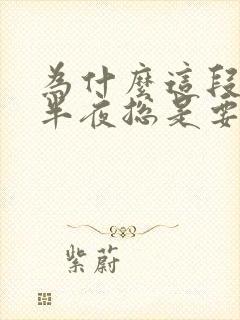 為什麼這段
半夜總是要
紫蔚